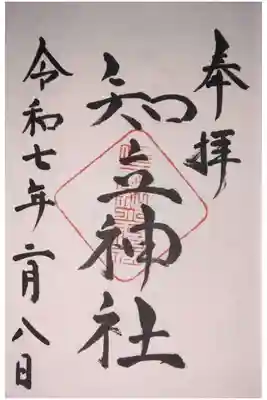 奉拝
知立神社
令和七年二月八日